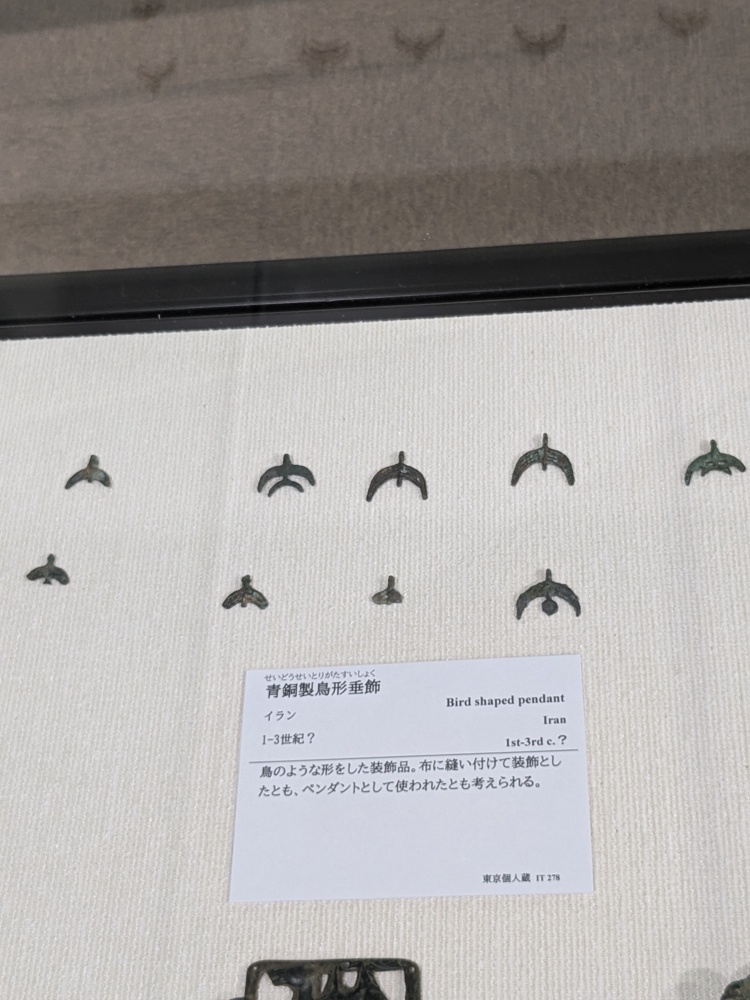 せいどうせいとりがたすいしょく
青銅製鳥形垂飾
Bird shaped pendant
イラン
Iran
1-3世紀？
1st-3rd c.？
鳥のような形をした装飾品。布に縫い付けて装飾とし
たとも、ペンダントとして使われたとも考えられる。
東京個人蔵 IT 278